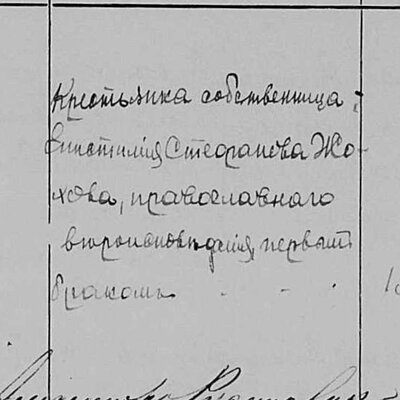 Крестьянка собственница
Стефанова Жо-
хова, православнаго
вѣроисповѣданія, первымъ
бракомъ